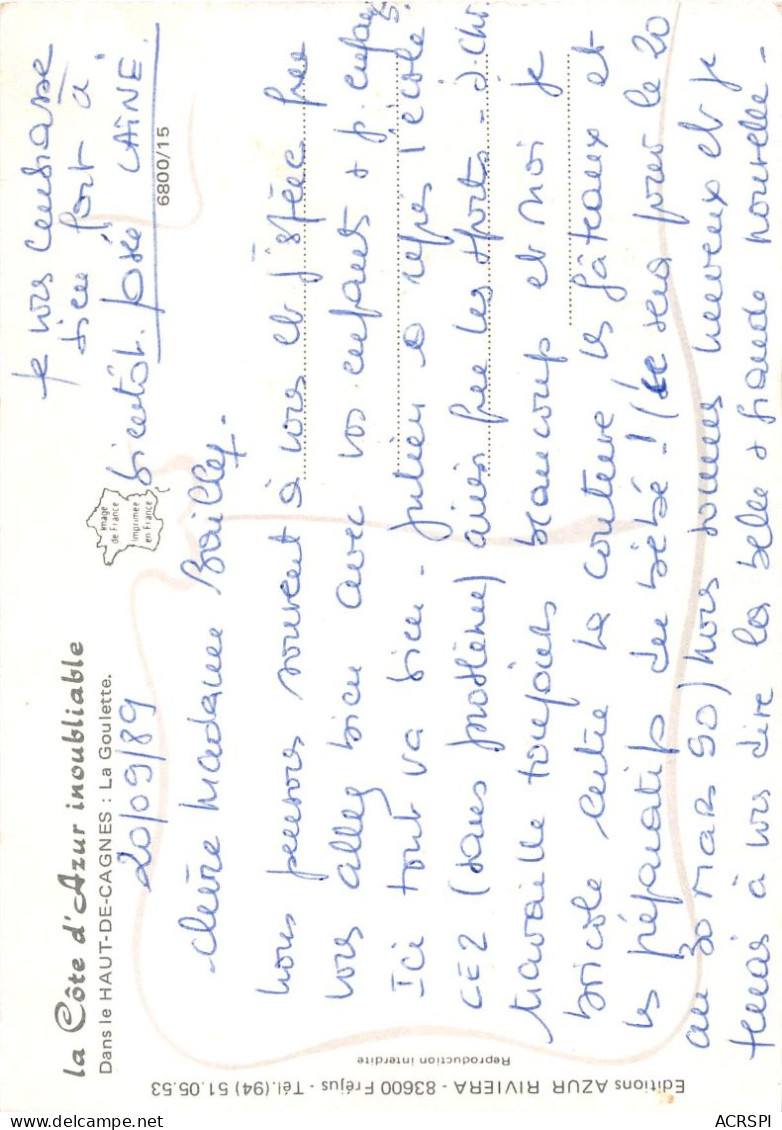 la Côte d'Azur inoubliable
Dans le HAUT-DE-CAGNES : La Goulette.
20/09/89
Image
de France
Imprimée
en France
chère Madame Baillet.
Nous pensons souvent à vous et j'espère que
vous allez bien avec vos enfants & p. enfants.
Ici tout va bien. Julien a repris l'école
CE2 (sans problème) ainsi que les sports - J. Chr.
travaille toujours beaucoup et moi je
bricole entre la couture, les gâteaux et
les préparatifs du bébé ! (ce sera pour le 20
au 30 MARS 90) nous sommes heureux et je
tenais à vous dire la belle & grande nouvelle -
Je vous embrasse
bien fort à
bientôt. José LAINE.
6800/15
Editions AZUR RIVIERA - 83600 Fréjus - Tél. (94) 51.05.53
Reproduction interdite
ACRSPI